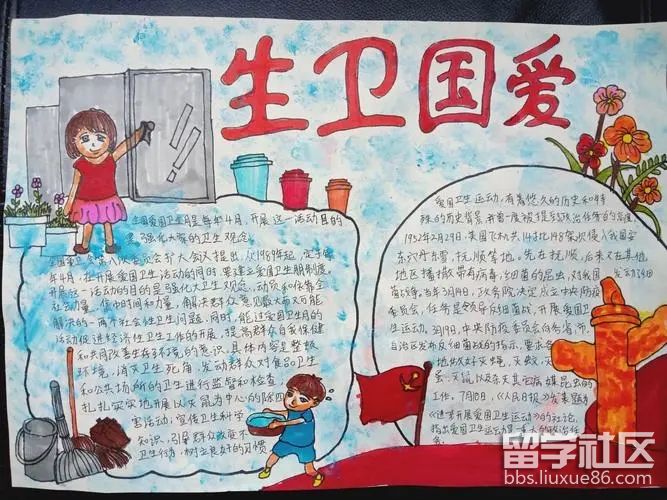 生卫国爱
全国爱国卫生月是每年4月,开展这一活动目的
是强化大家的卫生观念。
年4月,在开展爱国卫生活动的同时,要建立爱国卫生月制度,
开展这一活动的目的是强化大卫生观念,动员和依靠全
社会力量,集中时间和力量,解决群众意见最大而又可能
解决的一两个社会性卫生问题,同时,能过爱国卫生月的
活动促进经济性卫生工作的开展,提高群众自我保健
和共同改善生存环境的意识。具体内容是整顿
环境,消灭卫生死角,发动群众对食品卫生
和公共场所的卫生进行监督和检查,
扎扎实实地开展以灭鼠为中心的除四
害活动,宣传卫生科学
知识,引导群众改变不
卫生行为,树立良好的习惯
爱国卫生运动,有着悠久的历史和特
殊的历史背景
1952年2月29日,美国飞机共14批148架次侵入我国安
东
地区播撒带有病毒、细菌的昆虫,对我国发动细
菌战争,当年3月14日,政务院决定成立中央防疫
委员会,任务是领导反细菌战,开展爱国卫
生运动。3月19日,中央防疫委员会向各省、市、
自治区发布反细菌战的指示,要求各
地做好灭蝇、灭蚊、灭
蚤、灭鼠以及杀灭其它病媒昆虫的
工作。7月10日,《人民日报》发表题为
的社论,
留学社区
bbs.liuxue86.com